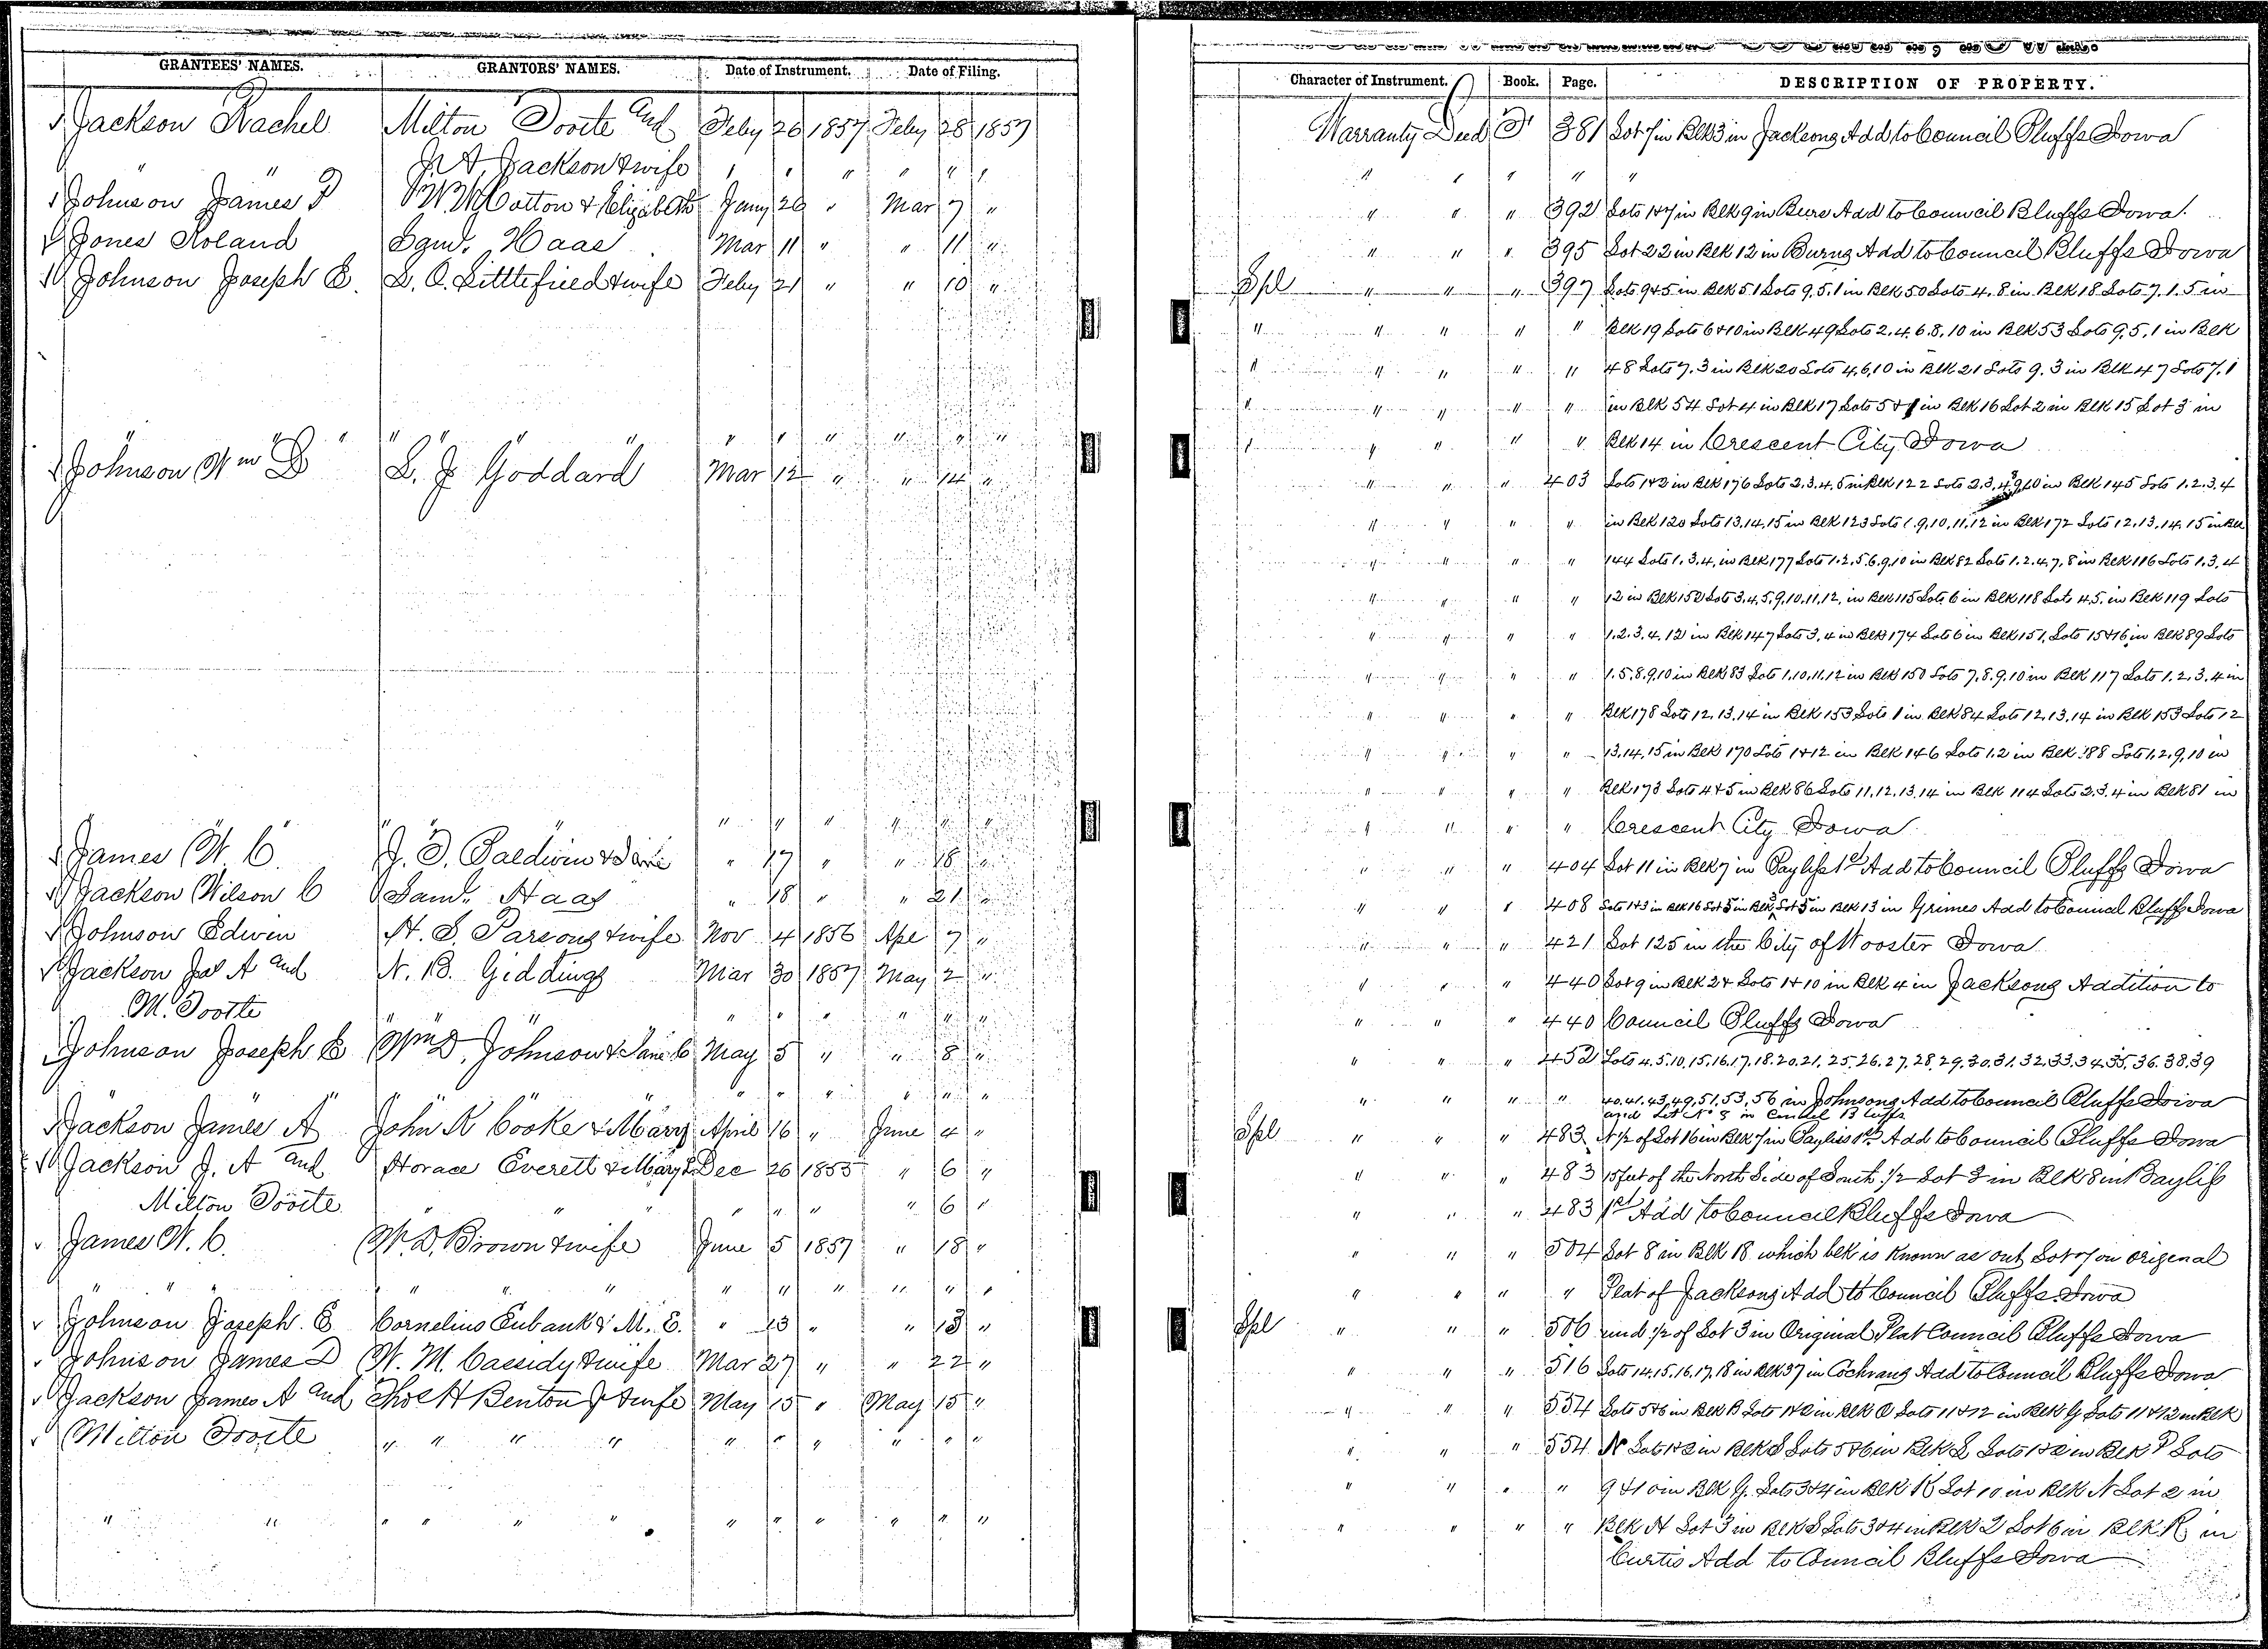 GRANTEES' NAMES. GRANTORS' NAMES. Date of Instrument. Date of Filing.
Jackson Rachel Milton Tootle and Feby 26 1857 Feby 28 1857
" " J. A. Jackson & wife " " " " " "
Johnson James P W. W. Cotton & Elizabeth Jany 26 " Mar 7 "
Jones Roland Saml. Haas Mar 11 " " 11 "
Johnson Joseph E. L. O. Littlefield & wife Feby 21 " " 10 "
" " " " " " " " " " " "
Johnson Wm D L. J. Goddard Mar 12 " " 14 "
" " " " " " " "
James W. C. J. T. Baldwin & Jane " 17 " " 18 "
Jackson Wilson C Saml. Haas " 18 " " 21 "
Johnson Edwin H. S. Parsons & wife Nov 4 1856 Apl 7 "
Jackson Jas A and N. B. Giddings Mar 30 1857 May 2 "
M. Tootle " " " " " " " "
Johnson Joseph E Wm D. Johnson & Jane C May 5 " " 8 "
" " " " " " " " " "
Jackson James A John R Cooke & Mary April 16 " June 4 "
Jackson J. A and Horace Everett & Mary L Dec 26 1855 " 6 "
Milton Tootle " " " " " " " 6 "
James W. C. W. D. Brown & wife June 5 1857 " 18 "
" " " " " " " " " " " "
Johnson Joseph. E Cornelius Eubank & M. E. " 13 " " 13 "
Johnson James D W. M. Cassidy & wife Mar 27 " " 22 "
Jackson James A and Thos H Benton Jr & wife May 15 " May 15 "
Milton Tootle " " " " " " " " " "
" " " " " " " " " " " "
Character of Instrument. Book. Page. DESCRIPTION OF PROPERTY.
Warranty Deed F 381 Lot 7 in Blk 3 in Jacksons Add to Council Bluffs Iowa
" " " " "
" " " 392 Lots 1&7 in Blk 9 in Beers Add to Council Bluffs Iowa.
" " " 395 Lot 22 in Blk 12 in Burns Add to Council Bluffs Iowa
Spl " " " 397 Lots 9&5 in Blk 51 Lots 9, 5, 1 in Blk 50 Lots 4, 8 in Blk 18 Lots 7, 1, 5 in
" " " " " Blk 19 Lots 6&10 in Blk 49 Lots 2, 4, 6, 8, 10 in Blk 53 Lots 9, 5, 1 in Blk
" " " " " 48 Lots 7, 3 in Blk 20 Lots 4, 6, 10 in Blk 21 Lots 9, 3 in Blk 47 Lots 7, 1
" " " " " in Blk 54 Lot 4 in Blk 17 Lots 5 & 1 in Blk 16 Lot 2 in Blk 15 Lot 3 in
" " " " " Blk 14 in Crescent City Iowa
" " " 403 Lots 1&2 in Blk 176 Lots 2, 3, 4, 5 in Blk 122 Lots 2, 3, 4, 9, 10 in Blk 145 Lots 1, 2, 3, 4
" " " " in Blk 120 Lots 13, 14, 15 in Blk 123 Lots 1, 9, 10, 11, 12 in Blk 172 Lots 12, 13, 14, 15 in Blk
" " " " 144 Lots 1, 3, 4, in Blk 177 Lots 1, 2, 5, 6, 9, 10 in Blk 82 Lots 1, 2, 4, 7, 8 in Blk 116 Lots 1, 3, 4
" " " " 12 in Blk 152 Lots 3, 4, 5, 9, 10, 11, 12, in Blk 115 Lots 6 in Blk 118 Lots 4, 5, in Blk 119 Lots
" " " " 1, 2, 3, 4, 12 in Blk 147 Lots 3, 4 in Blk 174 Lots 6 in Blk 151, Lots 15&16 in Blk 89 Lots
" " " " 1, 5, 8, 9, 10 in Blk 83 Lots 1, 10, 11, 12 in Blk 150 Lots 7, 8, 9, 10 in Blk 117 Lots 1, 2, 3, 4 in
" " " " Blk 178 Lots 12, 13, 14 in Blk 153 Lots 1 in Blk 84 Lots 12, 13, 14 in Blk 153 Lots 12
" " " " 13, 14, 15 in Blk 170 Lots 1&12 in Blk 146 Lots 1, 2 in Blk 88 Lots 1, 2, 9, 10 in
" " " " Blk 173 Lots 4&5 in Blk 86 Lots 11, 12, 13, 14 in Blk 114 Lots 2, 3, 4 in Blk 81 in
" " " " Crescent City Iowa
" " " 404 Lot 11 in Blk 7 in Bayliss 1st Add to Council Bluffs Iowa
" " " 408 Lots 1&3 in Blk 16 Lot 5 in Blk Lot 5 in Blk 13 in Grimes Add to Council Bluffs Iowa
" " " 421 Lot 125 in the City of Wooster Iowa
" " " 440 Lot 9 in Blk 2 & Lots 1&10 in Blk 4 in Jacksons Addition to
" " " 440 Council Bluffs Iowa
" " " 452 Lots 4, 5, 10, 15, 16, 17, 18, 20, 21, 25, 26, 27, 28, 29, 30, 31, 32, 33, 34, 35, 36, 38, 39
" " " " 40, 41, 43, 49, 51, 53, 56 in Johnsons Add to Council Bluffs Iowa
and Lot No 3 in Council Bluffs
Spl " " " 483 N 1/2 of Lot 16 in Blk 7 in Bayliss 1st Add to Council Bluffs Iowa
" " " 483 15 feet of the North Side of South 1/2 Lot 3 in Blk 8 in Bayliss
" " " 483 1st Add to Council Bluffs Iowa
" " " 504 Lot 8 in Blk 18 which blk is Known as out Lot 7 on origenal
" " " " Plat of Jacksons Add to Council Bluffs Iowa
Spl " " " 506 und 1/2 of Lot 3 in Original Plat Council Bluffs Iowa
" " " 516 Lots 14, 15, 16, 17, 18 in Blk 37 in Cochrans Add to Council Bluffs Iowa
" " " 554 Lots 5&6 in Blk B Lots 1&2 in Blk Q Lots 11&12 in Blk G Lots 11&12 in Blk
" " " 554 N Lots 1&2 in Blk S Lots 5&6 in Blk L Lots 1&2 in Blk P Lots
" " " " 9 & 10 in Blk G. Lots 3&4 in Blk K Lot 10 in Blk N Lot 2 in
" " " " Blk H Lot 3 in Blk S Lots 3&4 in Blk Lot 6 in Blk R in
Curtis Add to Council Bluffs Iowa